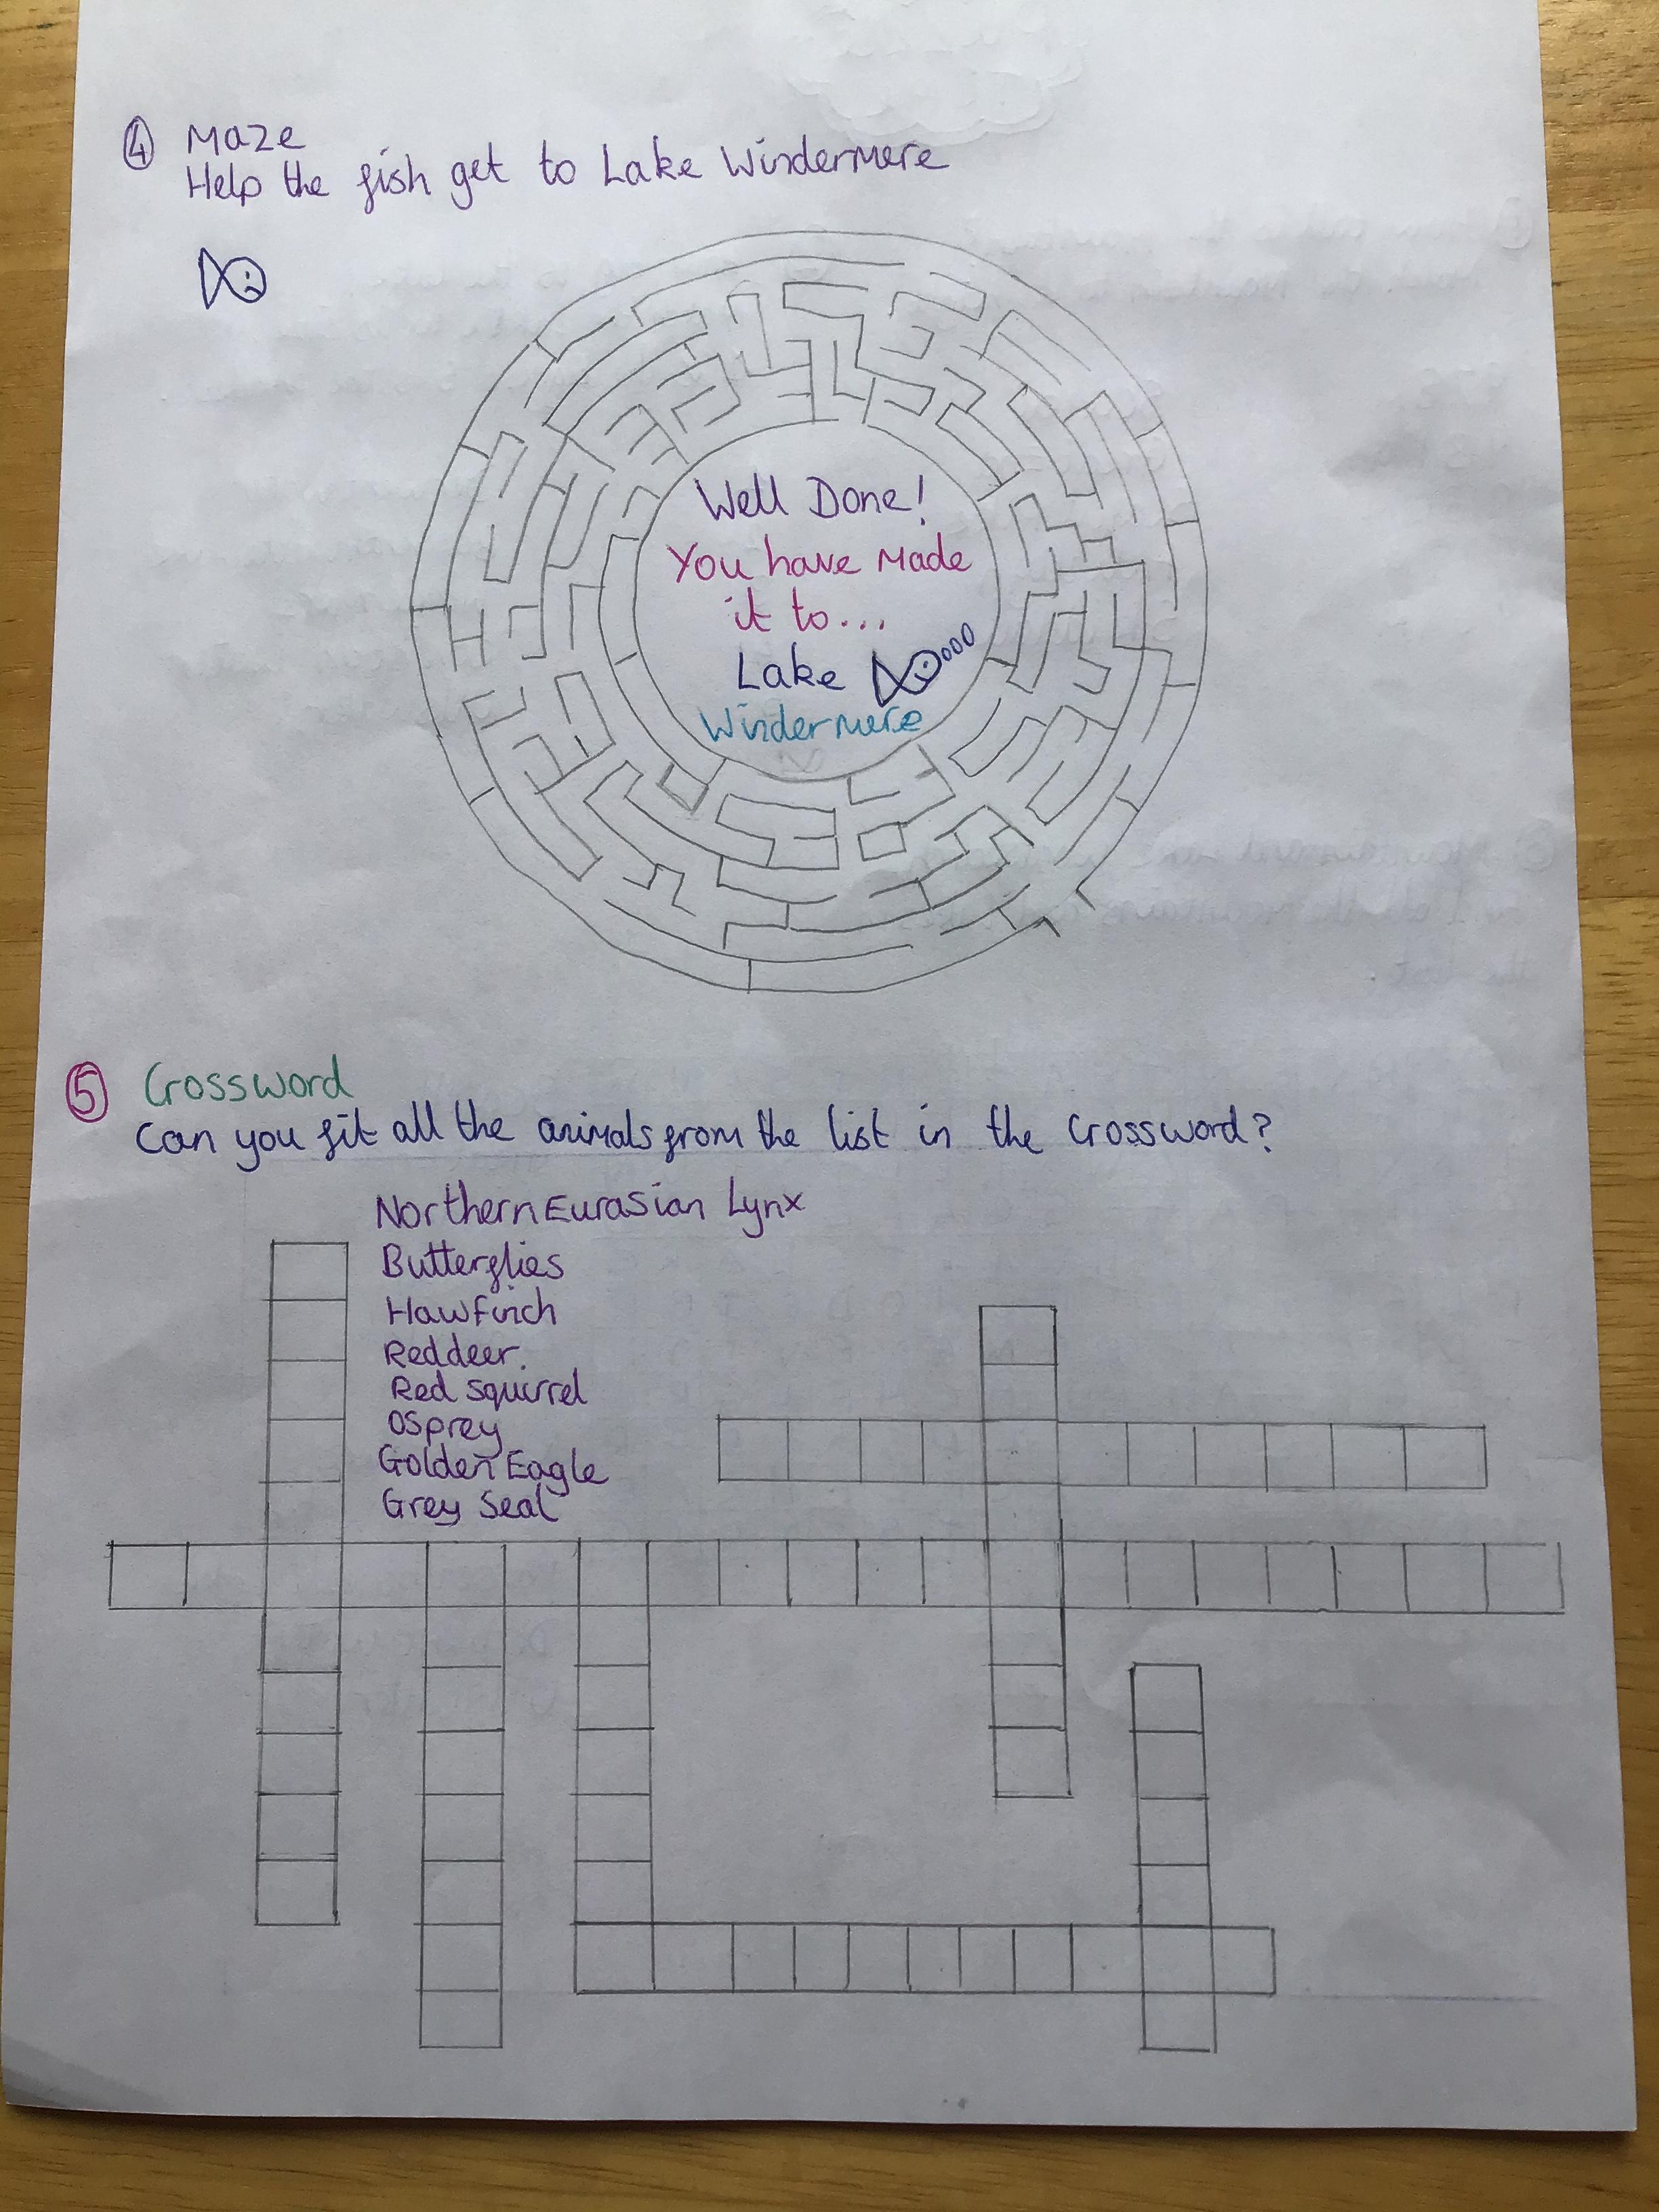 4 Maze
Help the fish get to Lake Windermere
Well Done!
You have made
it to...
Lake
Windermere
5 Crossword
Can you fit all the animals from the list in the crossword?
Northern Eurasian Lynx
Butterflies
Hawfinch
Reddeer.
Red squirrel
Osprey
Golden Eagle
Grey Seal